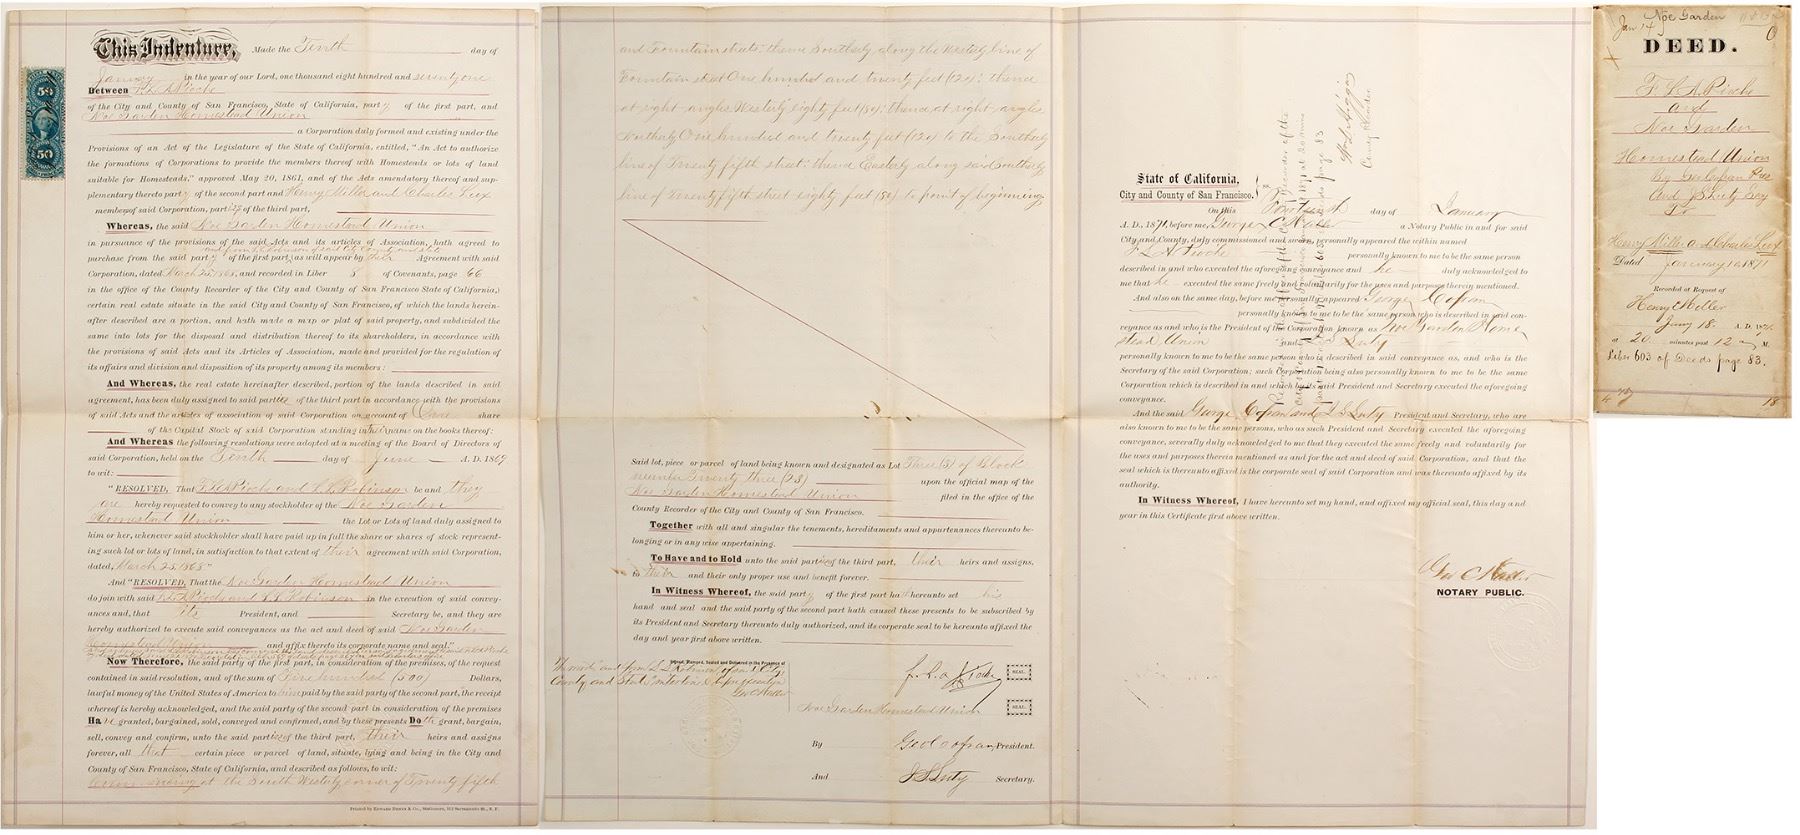 This Indenture, Made the Tenth day of
January in the year of our Lord, one thousand eight hundred and seventy one
Between F. L. A. Pioche
of the City and County of San Francisco, State of California, party of the first part, and
Noe Garden Homestead Union
a Corporation duly formed and existing under the
Provisions of an Act of the Legislature of the State of California, entitled, "An Act to authorize
the formations of Corporations to provide the members thereof with Homesteads or lots of land
suitable for Homesteads," approved May 20, 1861, and of the Acts amendatory thereof and sup-
plementary thereto party of the second part and Henry Miller and Charles Lux
members of said Corporation, parties of the third part,
Whereas, the said Noe Garden Homestead Union
in pursuance of the provisions of the said Acts and its articles of Association, hath agreed to
and from L. L. Robinson of said City County and State
purchase from the said party of the first part, as will appear by their Agreement with said
Corporation, dated March 25, 1868, and recorded in Liber 8 of Covenants, page 66
in the office of the County Recorder of the City and County of San Francisco State of California,
certain real estate situate in the said City and County of San Francisco, of which the lands herein-
after described are a portion, and hath made a map or plat of said property, and subdivided the
same into lots for the disposal and distribution thereof to its shareholders, in accordance with
the provisions of said Acts and its Articles of Association, made and provided for the regulation of
its affairs and division and disposition of its property among its members:
And Whereas, the real estate hereinafter described, portion of the lands described in said
agreement, has been duly assigned to said parties of the third part in accordance with the provisions
of said Acts and the articles of association of said Corporation on account of One share
of the Capital Stock of said Corporation standing in their name on the books thereof:
And Whereas the following resolutions were adopted at a meeting of the Board of Directors of
said Corporation, held on the Tenth day of June A. D. 1869
to wit:
"RESOLVED, That F. L. A. Pioche and L. L. Robinson be and they
are hereby requested to convey to any stockholder of the Noe Garden
Homestead Union the Lot or Lots of land duly assigned to
him or her, whenever said stockholder shall have paid up in full the share or shares of stock represent-
ing such lot or lots of land, in satisfaction to that extent of their agreement with said Corporation,
dated, March 25, 1868."
And "RESOLVED, That the Noe Garden Homestead Union
do join with said F. L. A. Pioche and L. L. Robinson in the execution of said convey-
ances and, that its President, and Secretary be, and they are
hereby authorized to execute said conveyances as the act and deed of said Noe Garden
Homestead Union and affix thereto its corporate name and seal."
Now Therefore, the said party of the first part, in consideration of the premises, of the request
contained in said resolution, and of the sum of Five hundred (500) Dollars,
lawful money of the United States of America to him paid by the said party of the second part, the receipt
whereof is hereby acknowledged, and the said party of the second part in consideration of the premises
Have granted, bargained, sold, conveyed and confirmed, and by these presents Doth grant, bargain,
sell, convey and confirm, unto the said parties of the third part, their heirs and assigns
forever, all that certain piece or parcel of land, situate, lying and being in the City and
County of San Francisco, State of California, and described as follows, to wit:
Commencing at the South Westerly corner of Twenty fifth
Printed by Edward Bosqui & Co., Stationers, Sacramento St., S. F.
50
50
and Fountain streets: thence Southerly along the Westerly line of
Fountain street One hundred and twenty feet (120): thence
at right angles Westerly eighty feet (80): thence at right angles
Northerly One hundred and twenty feet (120) to the Southerly
line of Twenty fifth street: thence Easterly along said Southerly
line of Twenty fifth street eighty feet (80) to point of beginning
Said lot, piece or parcel of land being known and designated as Lot Three (3) of Block
number Twenty three (23) upon the official map of the
Noe Garden Homestead Union filed in the office of the
County Recorder of the City and County of San Francisco.
Together with all and singular the tenements, hereditaments and appurtenances thereunto be-
longing or in any wise appertaining.
To Have and to Hold unto the said parties of the third part, their heirs and assigns,
to their and their only proper use and benefit forever.
In Witness Whereof, the said party of the first part hath hereunto set his
hand and seal and the said party of the second part hath caused these presents to be subscribed by
its President and Secretary thereunto duly authorized, and its corporate seal to be hereunto affixed the
day and year first above written.
Signed, Sealed and Delivered in the Presence of
The words "and from L. L. Robinson of said City
County and State" interlined before execution
Geo C Waller
F. L. A. Pioche SEAL
Noe Garden Homestead Union SEAL
By Geo Cofran President.
And J S Luty Secretary.
State of California,
City and County of San Francisco. ss.
On this Fourteenth day of January
A. D. 1871, before me, George C Waller a Notary Public in and for said
City and County, duly commissioned and sworn, personally appeared the within named
F L A Pioche personally known to me to be the same person
described in and who executed the aforegoing conveyance and he duly acknowledged to
me that he executed the same freely and voluntarily for the uses and purposes therein mentioned.
And also on the same day, before me personally appeared George Cofran
personally known to me to be the same person who is described in said con-
veyance as and who is the President of the Corporation known as Noe Garden Home
stead Union and J S Luty
personally known to me to be the same person who is described in said conveyance as, and who is the
Secretary of the said Corporation; such Corporation being also personally known to me to be the same
Corporation which is described in and which by its said President and Secretary executed the aforegoing
conveyance.
And the said George Cofran and J S Luty President and Secretary, who are
also known to me to be the same persons, who as such President and Secretary executed the aforegoing
conveyance, severally duly acknowledged to me that they executed the same freely and voluntarily for
the uses and purposes therein mentioned as and for the act and deed of said Corporation, and that the
seal which is thereunto affixed is the corporate seal of said Corporation and was thereunto affixed by its
authority.
In Witness Whereof, I have hereunto set my hand, and affixed my official seal, this day and
year in this Certificate first above written.
Geo C Waller
NOTARY PUBLIC.
Noe Garden
Jan 14
DEED.
F L A Pioche
and
Noe Garden
Homestead Union
By Geo Cofran Pres
and J S Luty Secy
To
Henry Miller and Charles Lux
Dated January 10, 1871
Recorded at Request of
Henry Miller
Jany 18 A. D. 1871
at 20 minutes past 12 M.
Liber 603 of Deeds page 83.
18